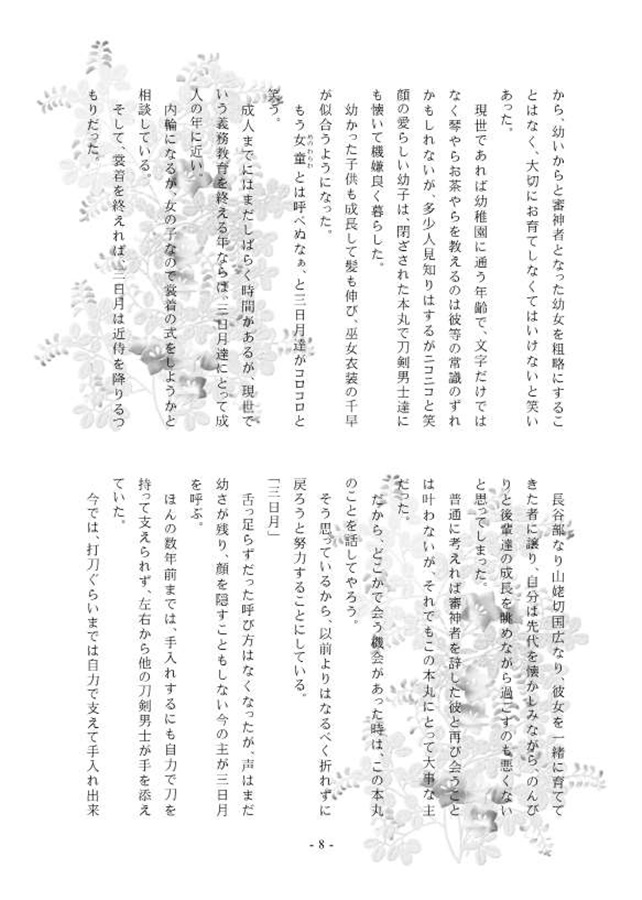 から、幼いからと審神者となった幼女を粗略にするこ
とはなく、大切にお育てしなくてはいけないと笑い
あった。
現世であれば幼稚園に通う年齢で、文字だけでは
なく琴やらお茶やらを教えるのは彼等の常識のずれ
かもしれないが、多少人見知りはするがニコニコと笑
顔の愛らしい幼子は、閉ざされた本丸で刀剣男士達に
も懐いて機嫌良く暮らした。
幼かった子供も成長して髪も伸び、巫女衣装の千早
が似合うようになった。
もう女童とは呼べぬなぁ、と三日月達がコロコロと
めのわらわ
笑う。
成人までにはまだしばらく時間があるが、現世で
いう義務教育を終える年ならば、三日月達にとって成
人の年に近い。
内輪になるが、女の子なので裳着の式をしようかと
相談している。
そして、裳着を終えれば、三日月は近侍を降りるつ
もりだった。
長谷部なり山姥切国広なり、彼女を一緒に育てて
きた者に譲り、自分は先代を懐かしみながら、のんび
りと後輩達の成長を眺めながら過ごすのも悪くない
と思ってしまった。
普通に考えれば審神者を辞した彼と再び会うこと
は叶わないが、それでもこの本丸にとって大事な主
だった。
だから、どこかで会う機会があった時は、この本丸
のことを話してやろう。
そう思っているから、以前よりはなるべく折れずに
戻ろうと努力することにしている。
「三日月」
舌っ足らずだった呼び方はなくなったが、声はまだ
幼さが残り、顔を隠すこともしない今の主が三日月
を呼ぶ。
ほんの数年前までは、手入れするにも自力で刀を
持って支えられず、左右から他の刀剣男士が手を添え
ていた。
今では、打刀ぐらいまでは自力で支えて手入れ出来
- 8 -